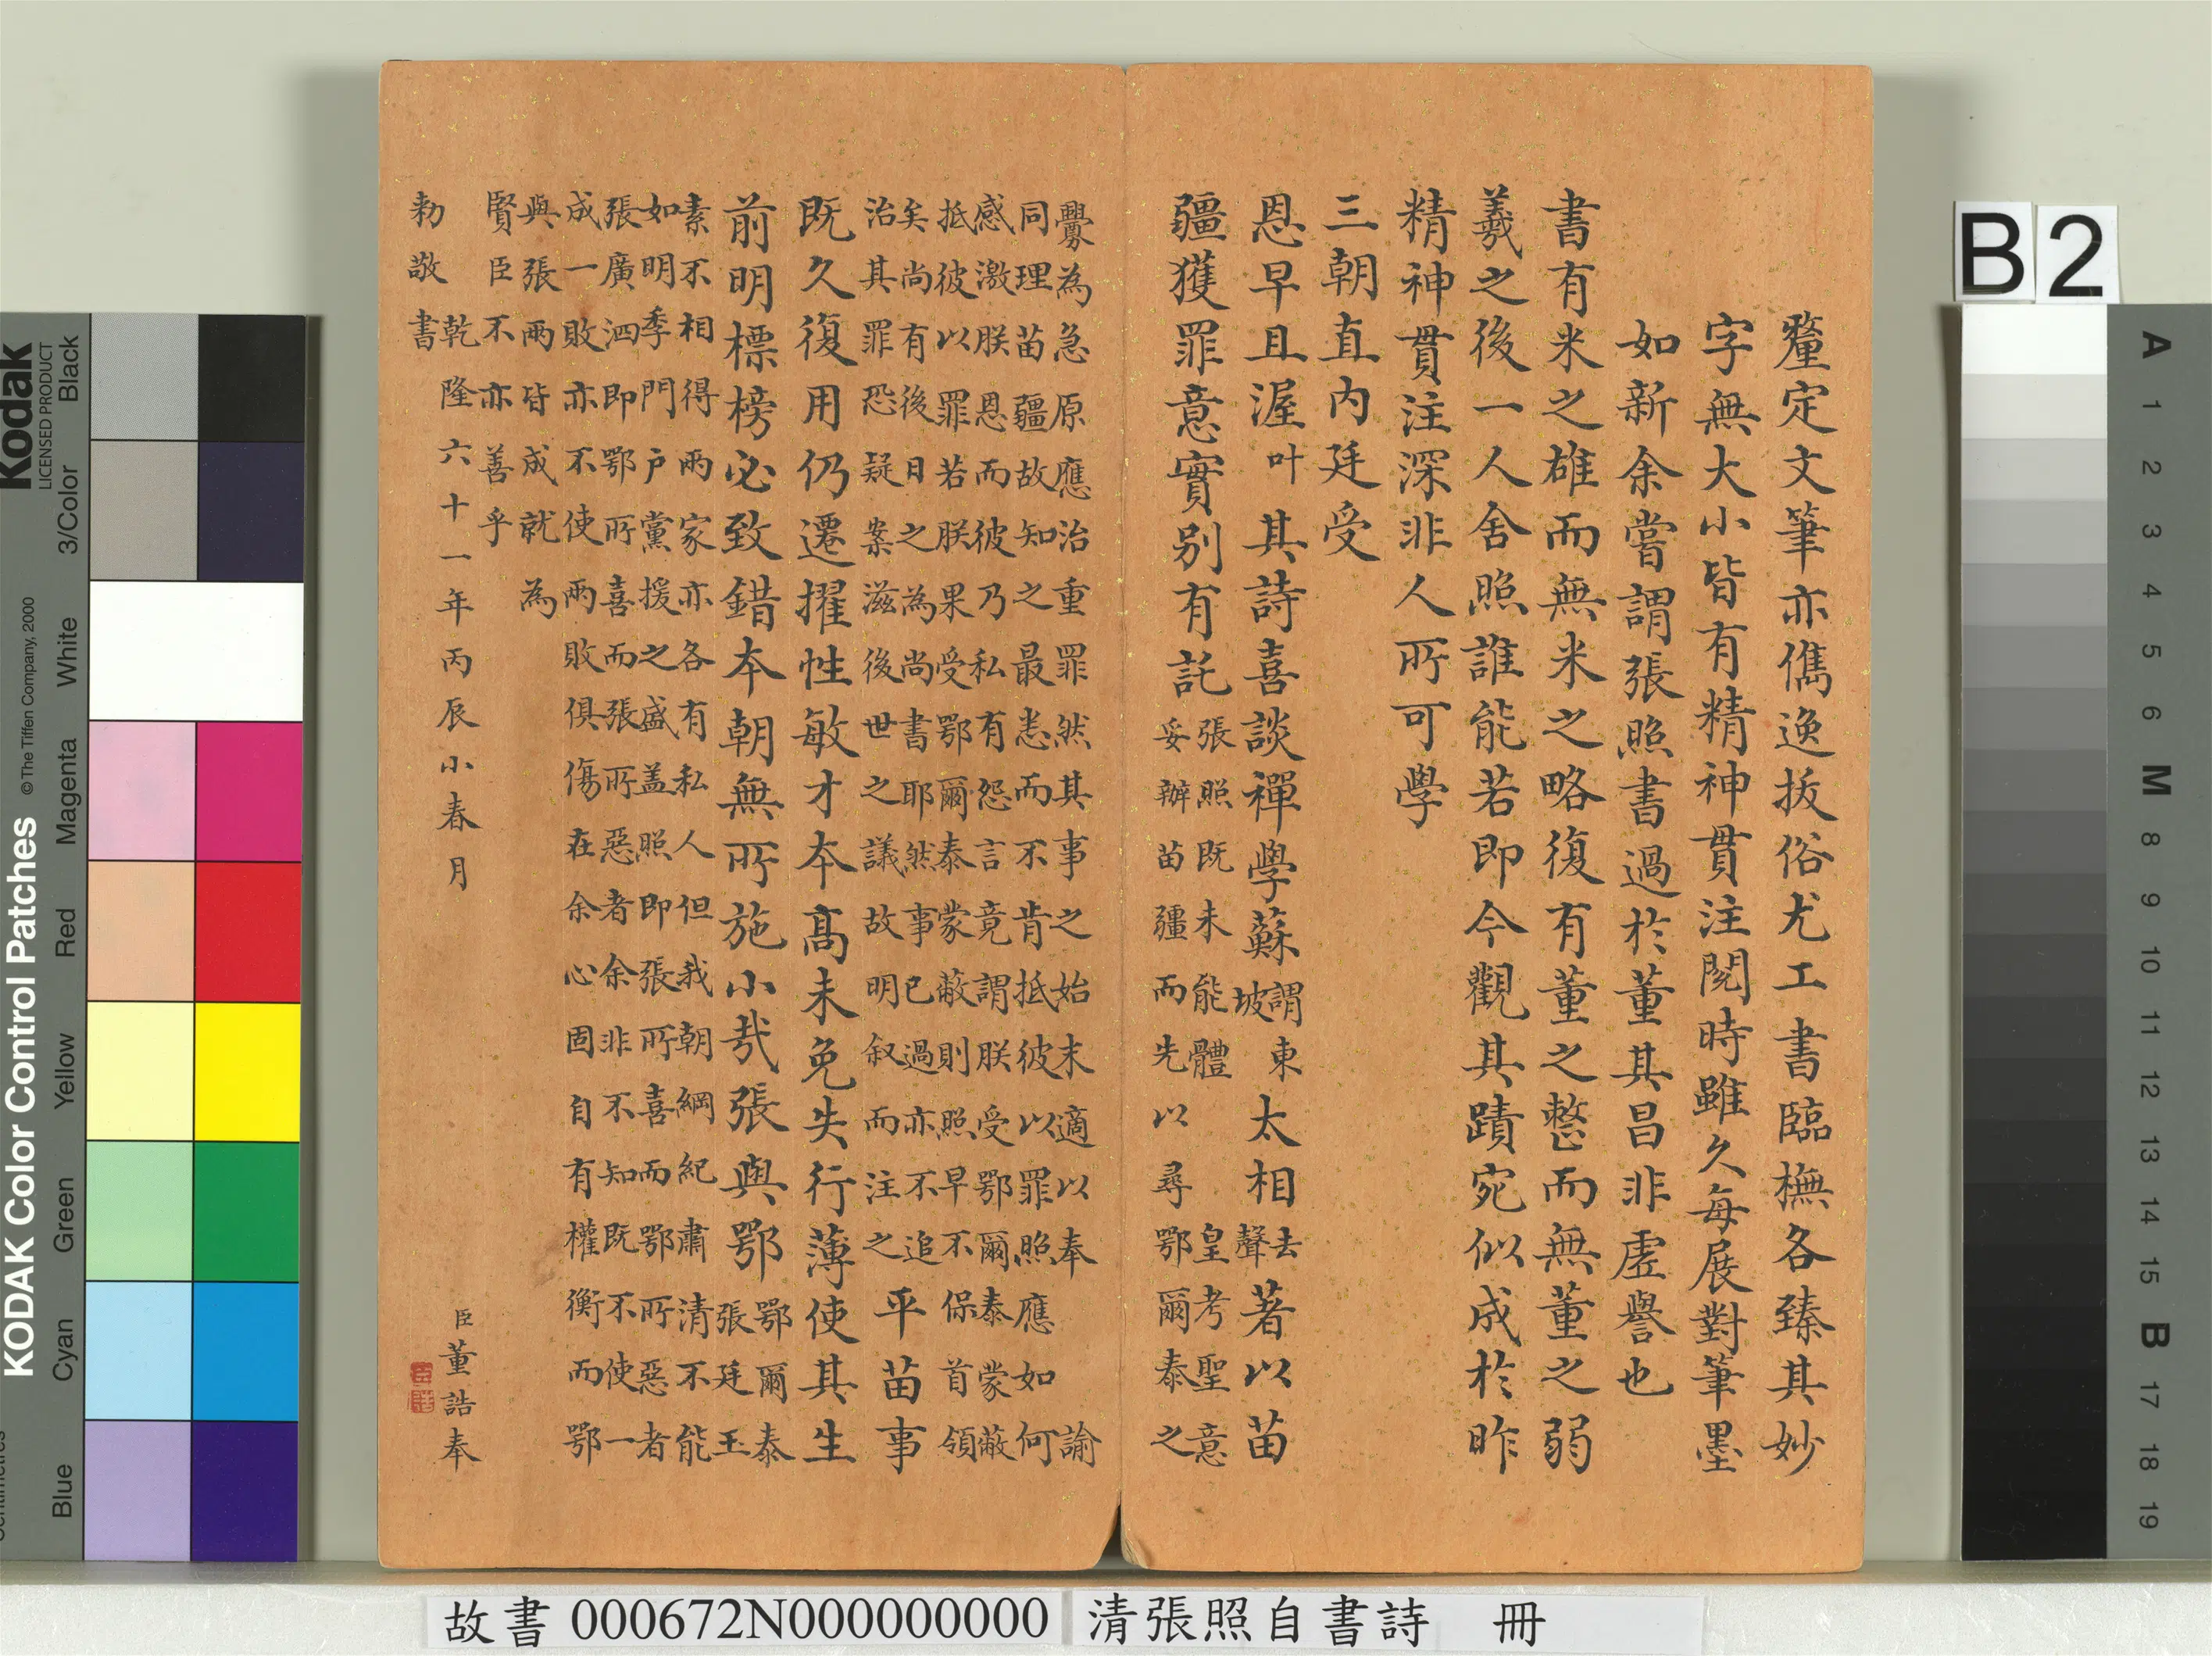 釐定文筆亦儁逸拔俗尤工書臨橅各臻其妙
字無大小皆有精神貫注閱時雖久每展對筆墨
如新余嘗謂張照書過於董其昌非虛譽也
書有米之雄而無米之略復有董之整而無董之弱
羲之後一人舍照誰能若即今觀其蹟宛似成於昨
精神貫注深非人所可學
三朝直內廷受
恩早且渥叶其詩喜談禪學蘇謂東坡太相去聲著以苗
疆獲罪意實別有託張照既未能體皇考聖意
妥辦苗疆而先以尋鄂爾泰之
釁為急原應治重罪然其事之始末適以奉諭
同理苗疆故知之最悉而不肯抵彼以罪照應如何
感激朕恩而彼乃私有怨言竟謂朕受鄂爾泰蒙蔽
抵彼以罪若朕果受鄂爾泰蒙蔽則照早不保首領
矣尚有後日之為尚書耶然事已過亦不追
治其罪恐疑案滋後世之議故明叙而注之平苗事
既久復用仍遷擢性敏才本高未免失行薄使其生
前明標榜必致錯本朝無所施小哉張與鄂鄂爾泰張廷玉
素不相得兩家亦各有私人但我朝綱紀肅清不能
如明季門戶黨援之盛盖照即張所喜而鄂所惡者
張廣泗即鄂所喜而張所惡者余非不知既不使一
成一敗亦不使兩敗俱傷在余心固自有權衡而鄂
與張兩皆成就為
賢臣不亦善乎
乾隆六十一年丙辰小春月 臣董誥奉
勅敬書
故書 000672N000000000 清張照自書詩 冊
B2
KODAK Color Control Patches
Kodak
LICENSED PRODUCT
©The Tiffen Company, 2000
Black
3/Color
White
Magenta
Red
Yellow
Green
Cyan
Blue
A 1 2 3 4 5 6 M 8 9 10 11 12 13 14 15 B 17 18 19